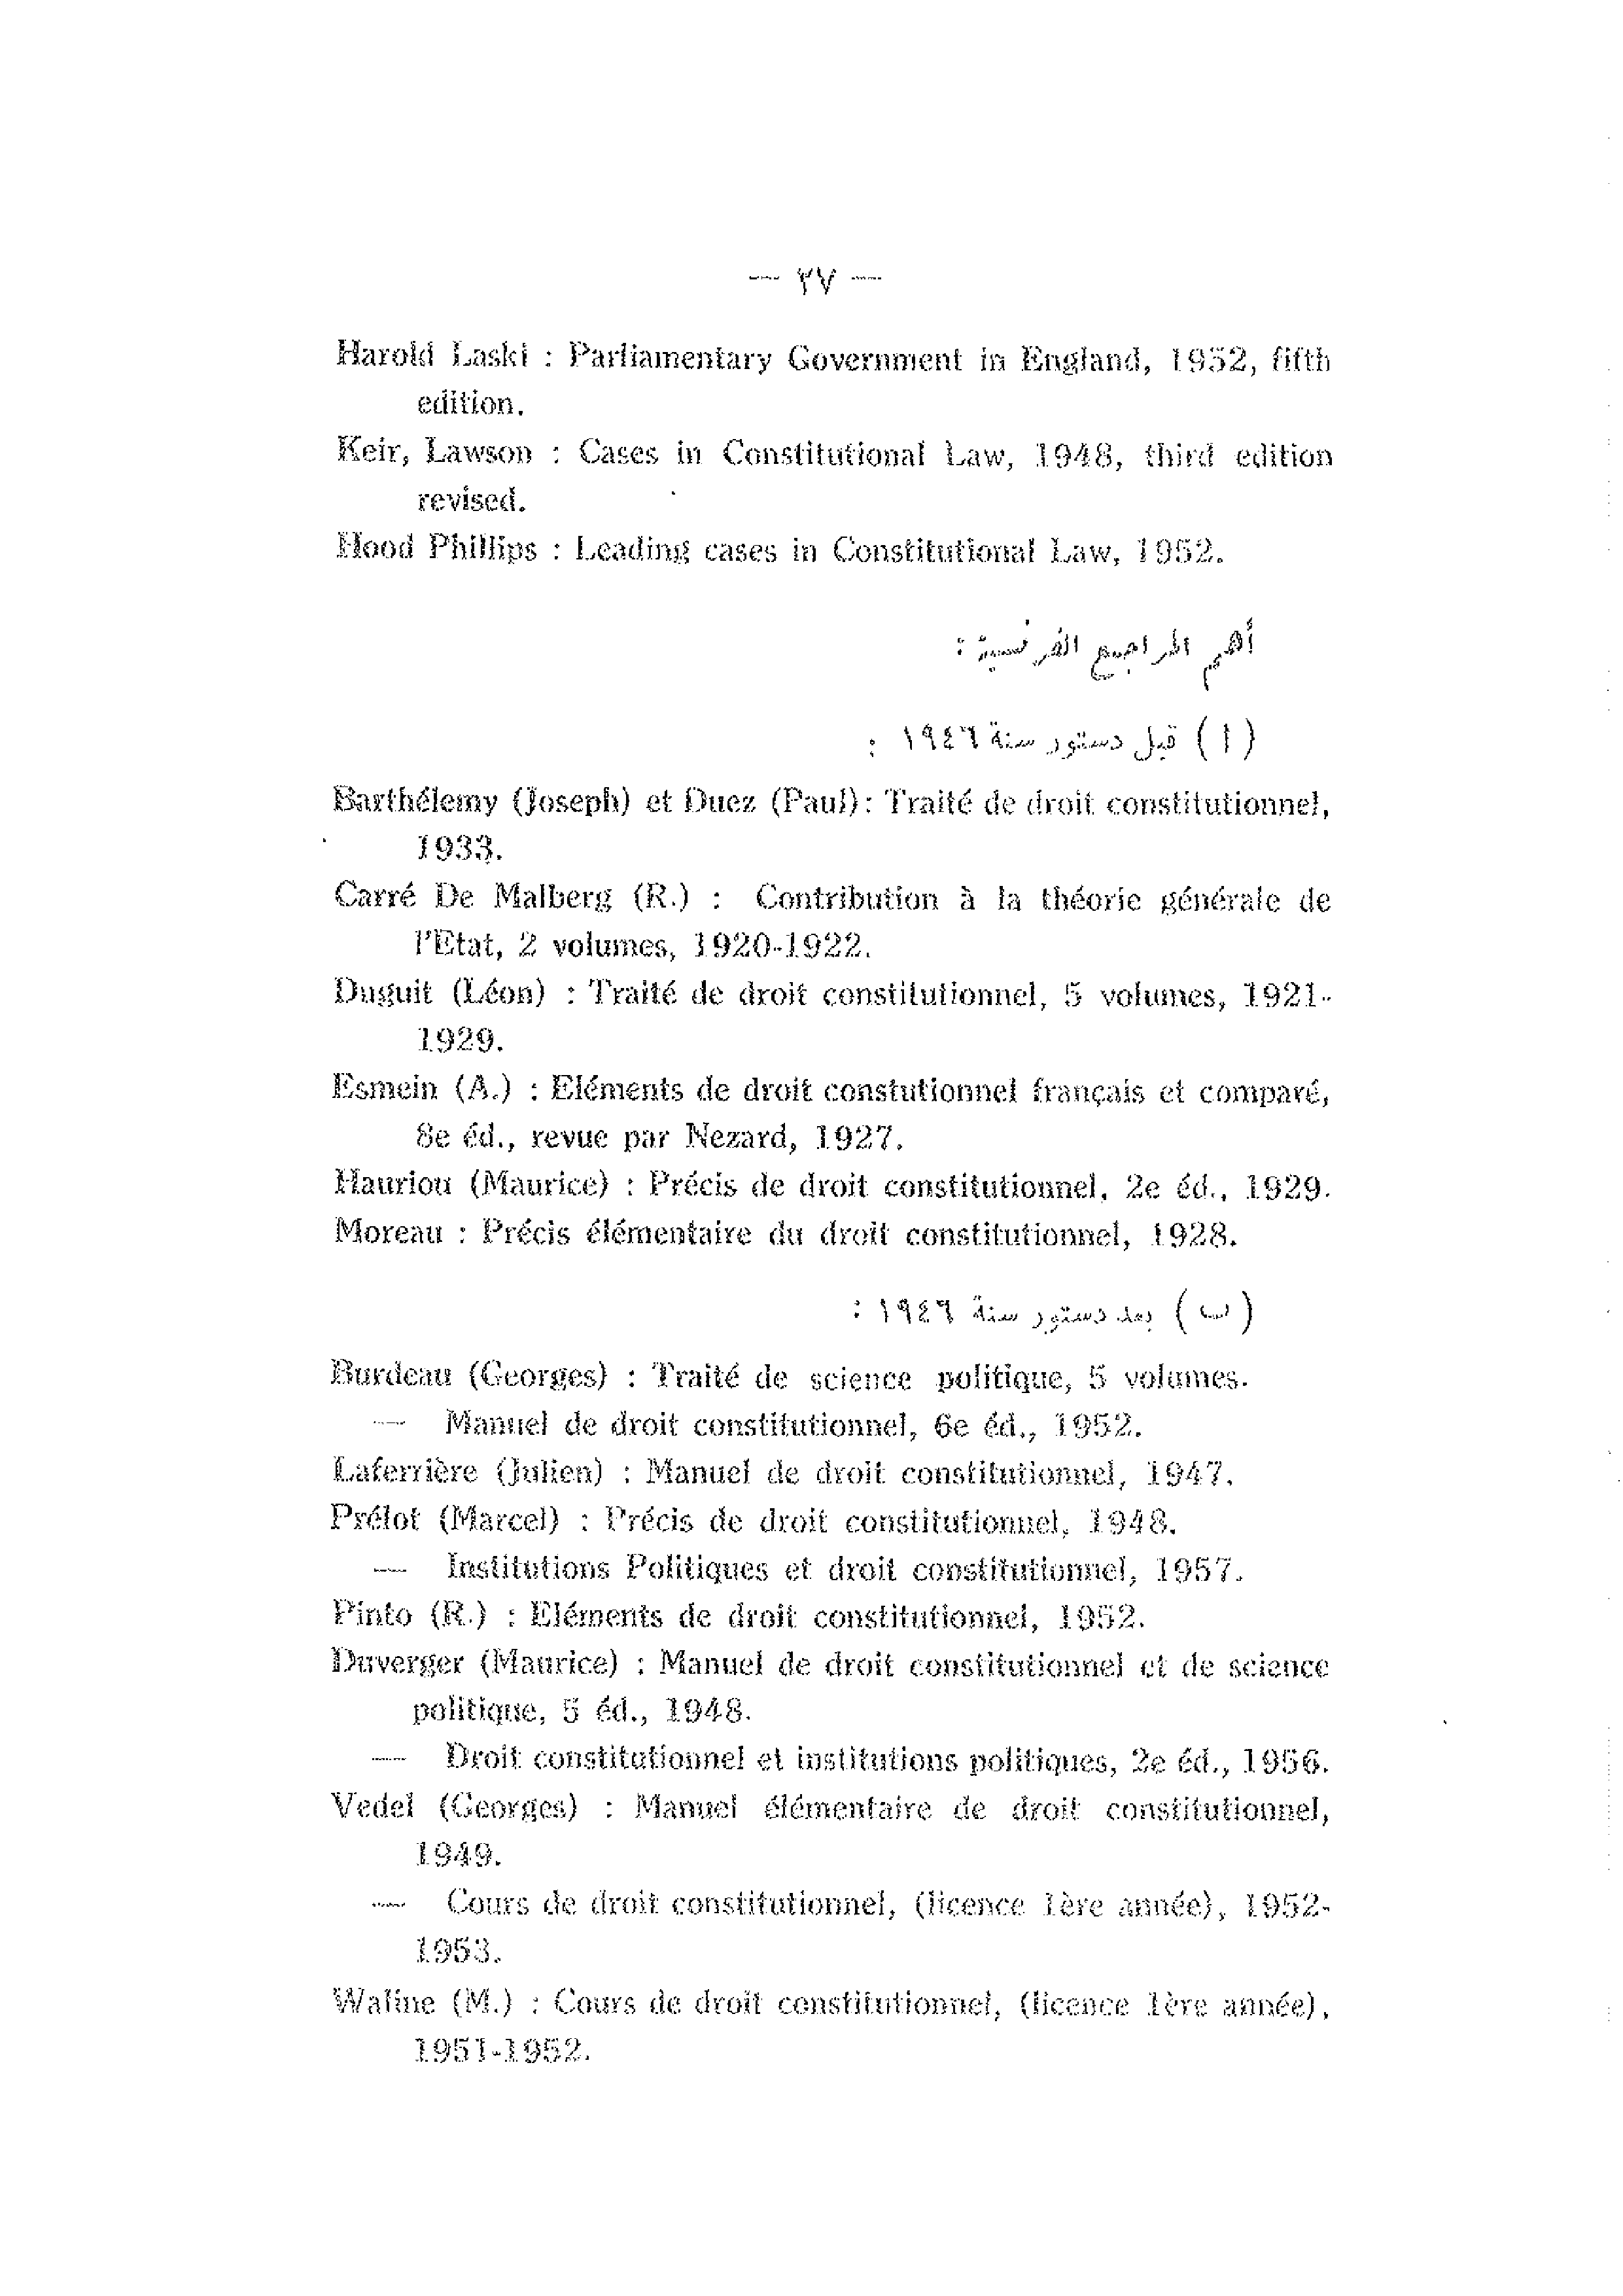 — ٣٧ —
Harold Laski : Parliamentary Government in England, 1952, fifth
edition.
Keir, Lawson : Cases in Constitutional Law, 1948, third edition
revised.
Hood Phillips : Leading cases in Constitutional Law, 1952.
أهم المراجع الفرنسية :
( ا ) قبل دستور سنة ١٩٤٦ :
Barthélemy (Joseph) et Duez (Paul): Traité de droit constitutionnel,
1933.
Carré De Malberg (R.) : Contribution à la théorie générale de
l'Etat, 2 volumes, 1920-1922.
Duguit (Léon) : Traité de droit constitutionnel, 5 volumes, 1921-
1929.
Esmein (A.) : Eléments de droit constutionnel français et comparé,
8e éd., revue par Nezard, 1927.
Hauriou (Maurice) : Précis de droit constitutionnel, 2e éd., 1929.
Moreau : Précis élémentaire du droit constitutionnel, 1928.
( ب ) بعد دستور سنة ١٩٤٦ :
Burdeau (Georges) : Traité de science politique, 5 volumes.
— Manuel de droit constitutionnel, 6e éd., 1952.
Laferrière (Julien) : Manuel de droit constitutionnel, 1947.
Prélot (Marcel) : Précis de droit constitutionnel, 1948.
— Institutions Politiques et droit constitutionnel, 1957.
Pinto (R.) : Eléments de droit constitutionnel, 1952.
Duverger (Maurice) : Manuel de droit constitutionnel et de science
politique, 5 éd., 1948.
— Droit constitutionnel et institutions politiques, 2e éd., 1956.
Vedel (Georges) : Manuel élémentaire de droit constitutionnel,
1949.
— Cours de droit constitutionnel, (licence 1ère année), 1952-
1953.
Waline (M.) : Cours de droit constitutionnel, (licence 1ère année),
1951-1952.